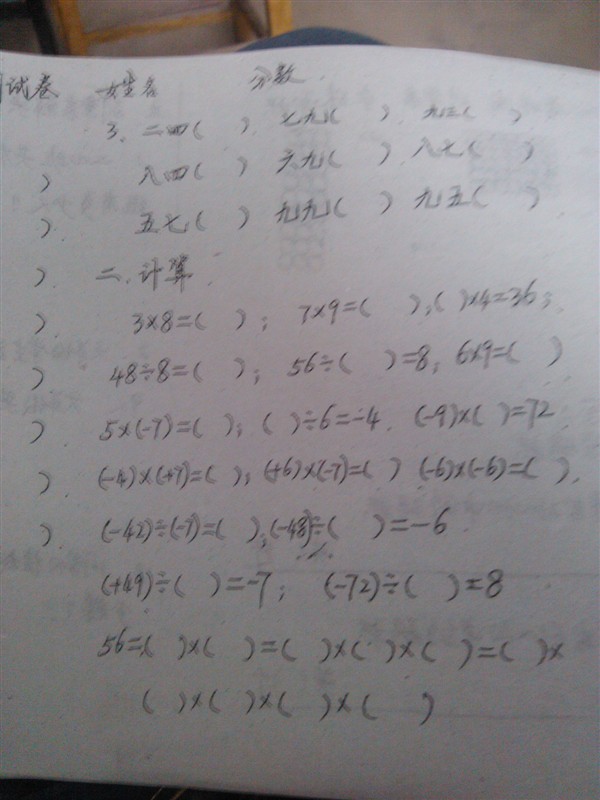 试卷 姓名 分数
3、二四( ). 七九( ). 九三( )
) 八四( ) 六九( ). 八七( )
). 五七( ) 九九( ) 九五( )
). 二、计算.
). 3×8=( ); 7×9=( );( )×4=36;
) 48÷8=( ); 56÷( )=8; 6×9=( )
). 5×(-7)=( ); ( )÷6=-4. (-9)×( )=72
). (-4)×(+7)=( ); (+6)×(-7)=( ) (-6)×(-6)=( ).
). (-42)÷(-7)=( ); (-48)÷( )=-6
(+49)÷( )=-7; (-72)÷( )=8
56=( )×( )=( )×( )×( )=( )×
( )×( )×( )×( )